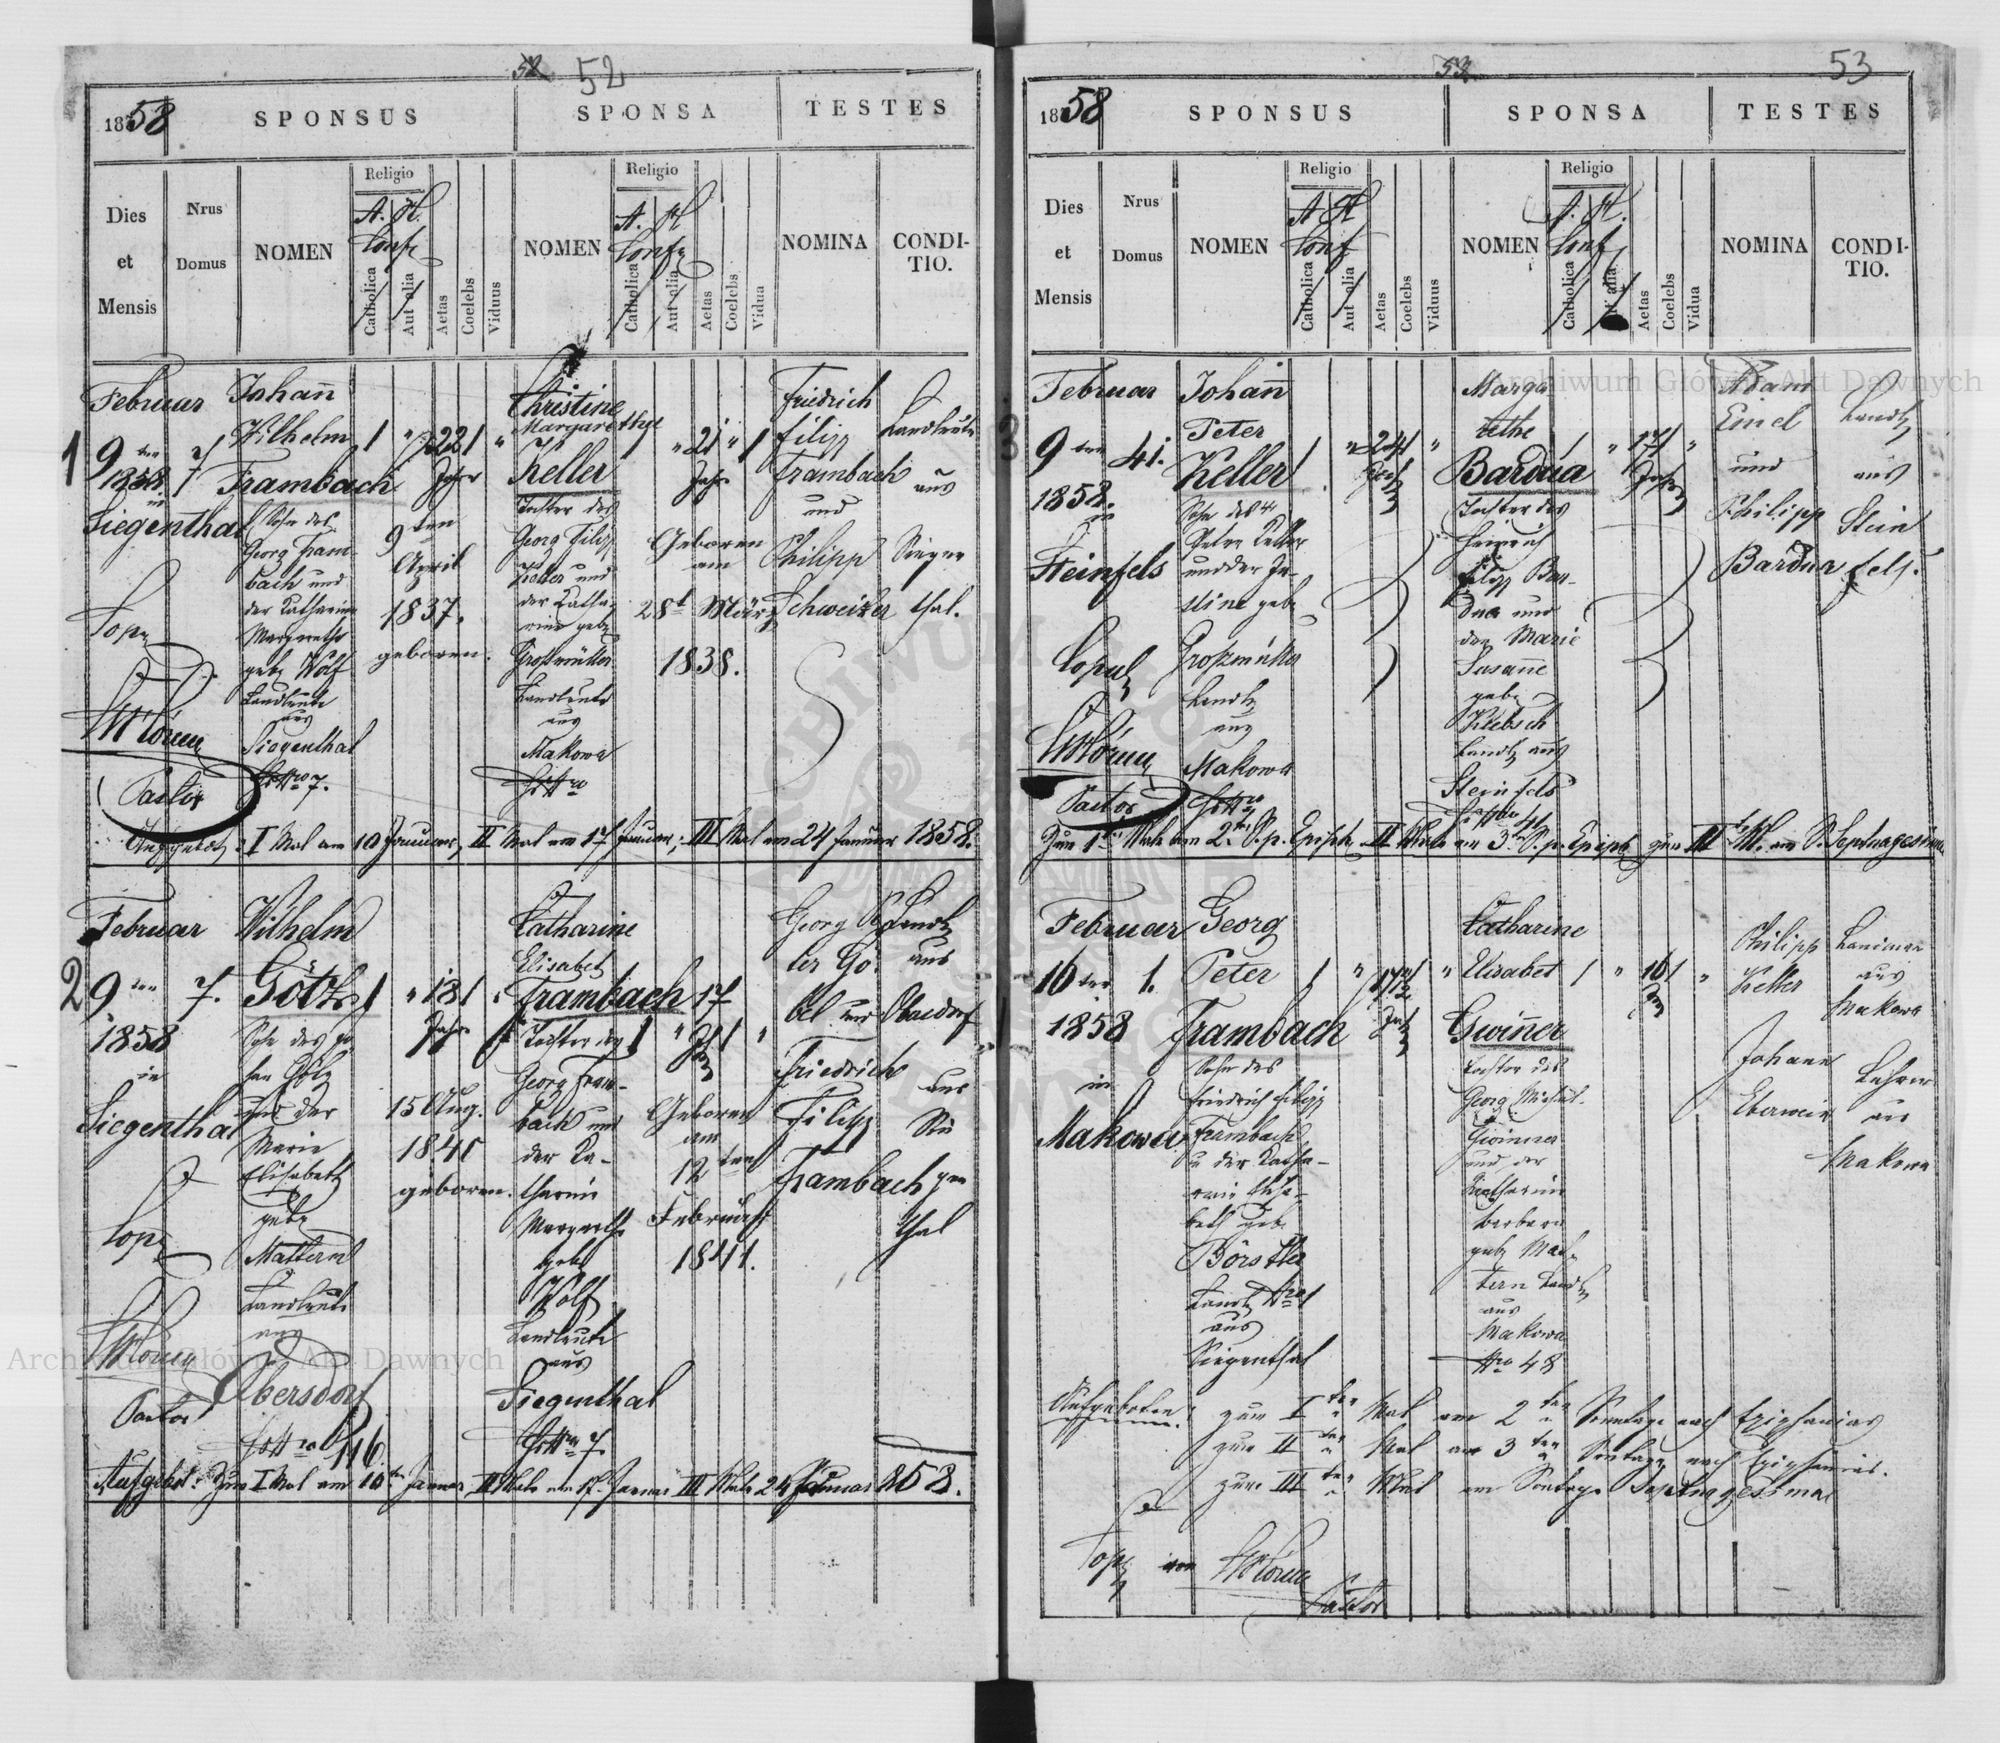 52
1858
SPONSUS
SPONSA
TESTES
Dies
et
Mensis
Nrus
Domus
NOMEN
Religio
A. H.
Conf.
Catholica
Aut alia
Aetas
Coelebs
Viduus
NOMEN
Religio
A. H.
Conf.
Catholica
Aut alia
Aetas
Coelebs
Vidua
NOMINA
CONDI-
TIO.
1
Februar
9ten
1858
in
Siegenthal
Cop.
Pastor
7
Johann
Wilhelm
Frambach
Sohn des
Georg Fram-
bach und
der Catharine
Margarethe
geb. Wolf
Landleute
aus
Siegenthal
7.
1 " 22 1 "
Jahr
9ten
April
1837.
geboren.
Christine
Margarethe
Keller
Tochter des
Georg Filipp
Keller und
der Katha-
rine geb.
Großmüller
Landleute
aus
Makowa
" 21 " 1
Jahr
Geboren
am
28t März
1838.
Friedrich
Filipp
Frambach
und
Philipp
Schweizer
Landleute
aus
Siegen
thal.
Aufgebot: I Mal am 10 Januar, II Mal am 17 Januar; III Mal am 24 Januar 1858.
2
Februar
9ten
1858
in
Siegenthal
Cop.
Pastor
7.
Wilhelm
Götz
Sohn des Jo-
han Götz
und der
Marie
Elisabeth
geb.
Mattern
Landleute
aus
Obersdorf
116
1 " 18 1
Jahre
15 Aug.
1840
geboren.
Catharine
Elisabet
Frambach
Tochter des
Georg Fram-
bach und
der Ka-
tharine
Margarethe
geb.
Wolf
Landleute
aus
Siegenthal
7.
17
Geboren
am
12ten
Februar
1841.
Georg Pe
ter Gö-
bel und
Friedrich
Filipp
Frambach
Landl.
aus
Obersdorf
aus
Sie
gen
thal
Aufgebot: Zum I Mal am 10ten Januar II Male am 17. Januar III Male 24 Januar 1858.
53
1858
SPONSUS
SPONSA
TESTES
Dies
et
Mensis
Nrus
Domus
NOMEN
Religio
A. H.
Conf
Catholica
Aut alia
Aetas
Coelebs
Viduus
NOMEN
Religio
A. H.
Conf
Catholica
Aut alia
Aetas
Coelebs
Vidua
NOMINA
CONDI-
TIO.
3
Februar
9ten
1858.
in
Steinfels
Copul.
Pastor
41.
Johann
Peter
Keller
Sohn des
Peter Keller
und der Ju-
stine geb.
Großmüller
Landl.
aus
Makowa
1 " 24 1 "
Jahr
Marga
rethe
Bardua
Tochter des
Heinrich
Filipp Bar-
dua und
der Marie
Susanne
geb.
Klebsch
Landl. aus
Steinfels
41
1 " 17 1 "
Jahr
Adam
Emel
und
Philipp
Bardua
Landl.
aus
Stein
fels.
Zum 1ten Male am 2ten S. p. Epiph. II Male am 3ten S. p. Epiph. zum III M. am S. Septuagesima
Februar
16ten
1858
in
Makowa
1.
Georg
Peter
Frambach
Sohn des
Friedrich Filipp
Frambach
u der Katha-
rine Elisa-
beth geb.
Börstler
Landl. Nro 1
aus
Siegenthal
Catharine
Elisabet
Gwinner
Tochter des
Georg Michel
Gwinner
und der
Katharine
Barbara
geb. Mat-
tern Landl.
aus
Makowa
Nro 48
1 " 16 1 "
Philipp
Keller
Johann
Eberwein
Landmann
aus
Makowa
Lehrer
in
Makowa
Aufgeboten: zum Iten Mal am 2ten Sonntage nach Epiphanias
zum IIten Mal am 3ten Sontage nach Epiphanias.
zum IIIten Mal am Sontage Septuagesimae
Cop. von
Pastor
Archiwum Główne Akt Dawnych
Archiwum Główne Akt Dawnych